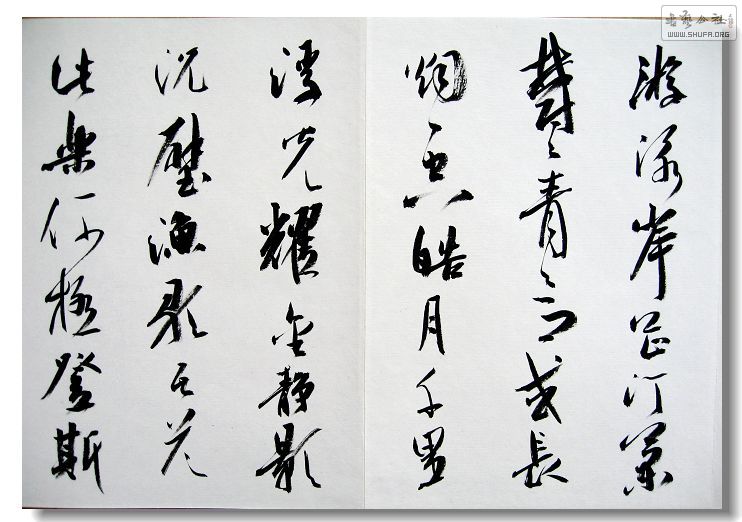 游泳岸芷汀蘭
鬱々青々而或長
烟一空皓月千里
浮光耀金静影
沉璧漁歌互答
此樂何極登斯
书艺公社
WWW.SHUFA.ORG